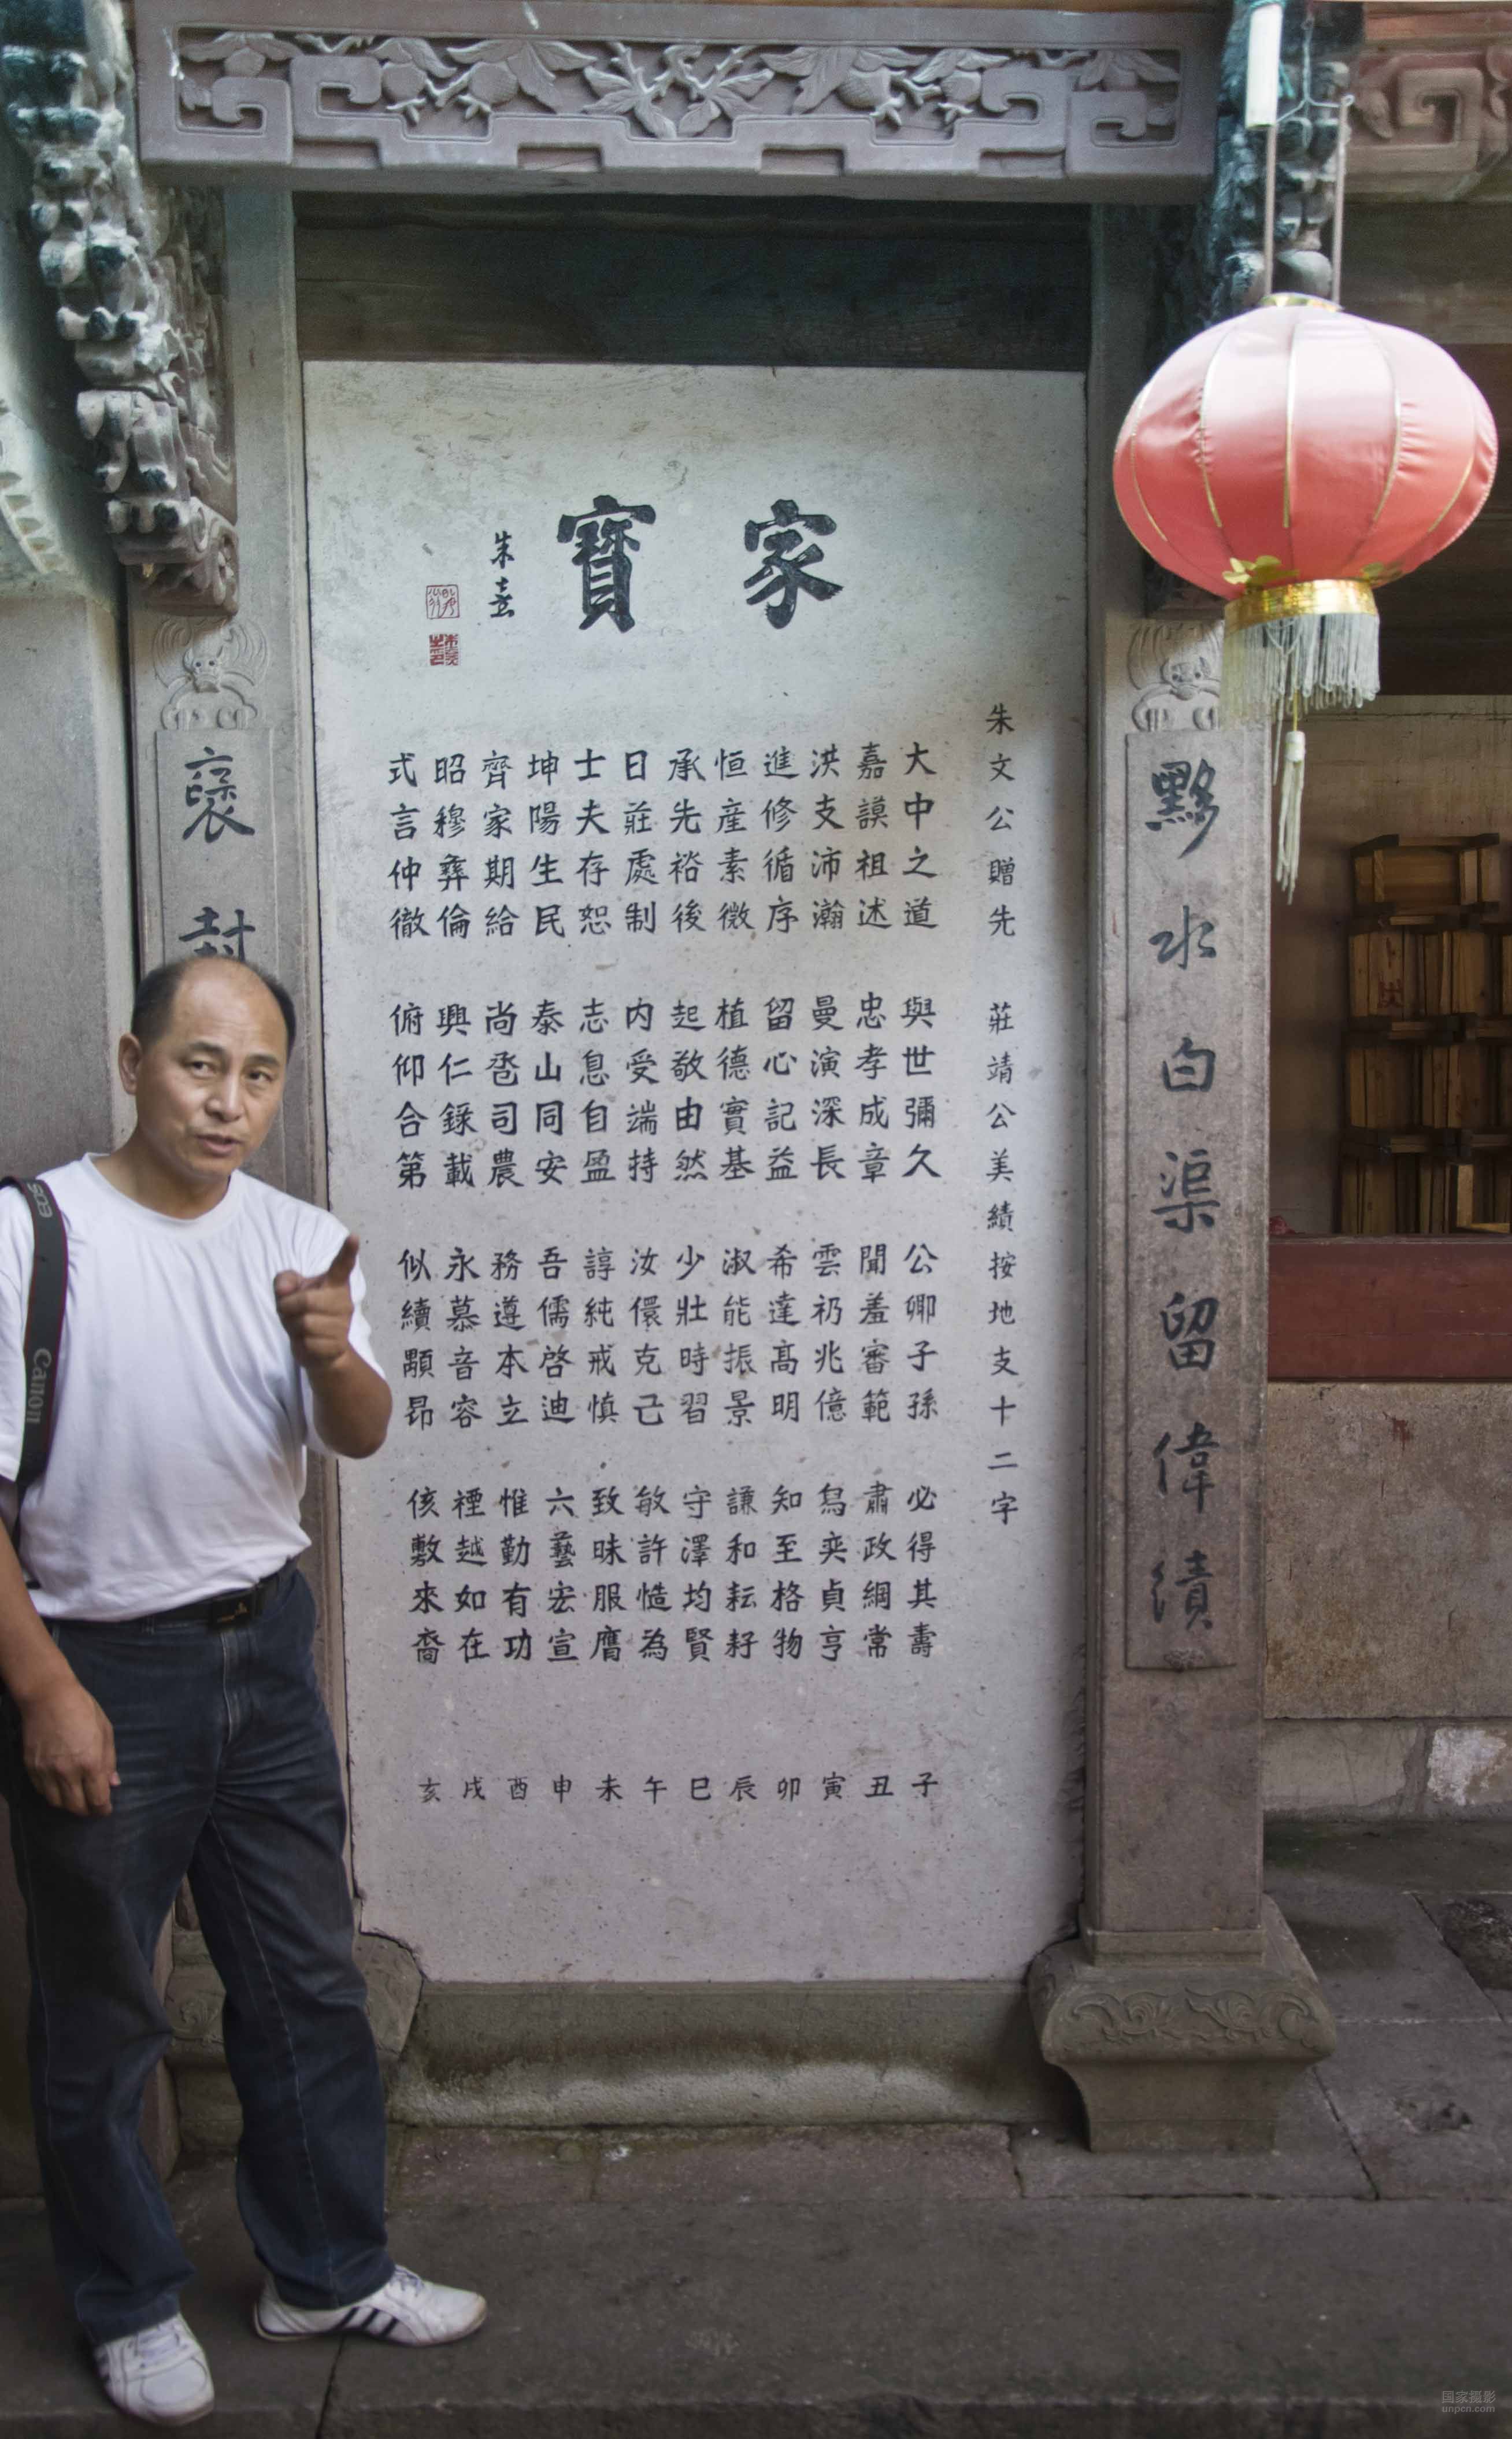 家寶
朱熹
朱文公贈先 莊靖公美績按地支十二字
大中之道 與世彌久 公卿子孫 必得其壽 子
嘉謨祖述 忠孝成章 聞羞審範 肅政綱常 丑
洪支沛瀚 曼演深長 雲礽兆億 舄奕貞亨 寅
進修循序 留心記益 希達髙明 知至格物 卯
恒産素微 植德實基 淑能振景 謙和耘耔 辰
承先裕後 起敬由然 少壯時習 守澤均賢 巳
日莊處制 内受端持 汝儇克己 敏許慥為 午
士夫存恕 志息自盈 諄純戒慎 致昧服膺 未
坤陽生民 泰山同安 吾儒啓迪 六藝宏宣 申
齊家期給 尚嗇司農 務遵本立 惟勤有功 酉
昭穆彝倫 興仁錄載 永慕音容 禋越如在 戌
式言仲徹 俯仰合第 似續顒昂 侅敷來裔 亥
黟水白渠留偉績
褒封
Canon
EOS
国家摄影
unpcn.com